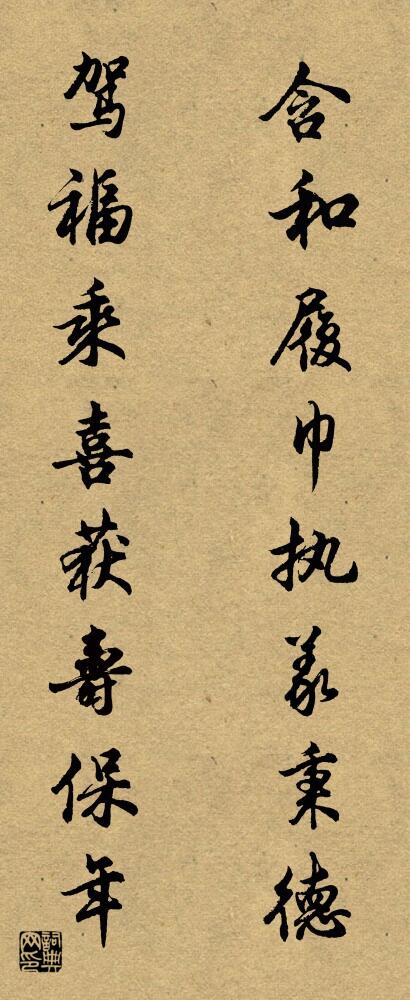 含和履中执義秉德
驾福乘喜获壽保年
詞典网印